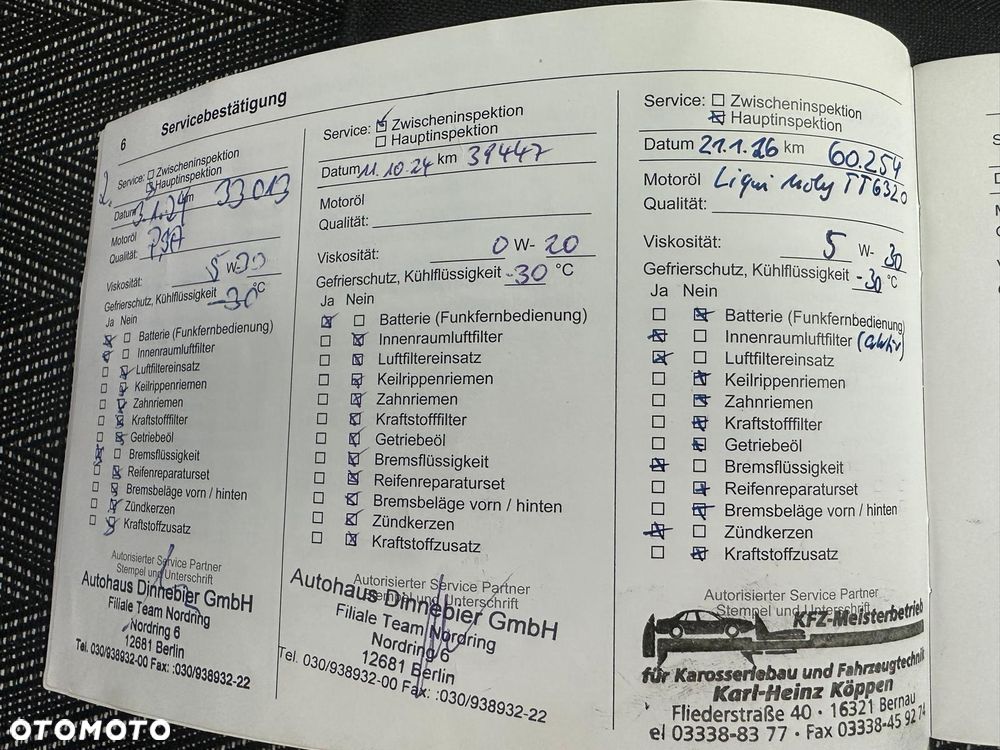 6
Servicebestätigung
2.
Service: Zwischeninspektion
Hauptinspektion
Datum 3.1.24 km 33013
Motoröl
Qualität: PSA
Viskosität: 5 W-30
Gefrierschutz, Kühlflüssigkeit -30 °C
Ja Nein
Batterie (Funkfernbedienung)
Innenraumluftfilter
Luftfiltereinsatz
Keilrippenriemen
Zahnriemen
Kraftstofffilter
Getriebeöl
Bremsflüssigkeit
Reifenreparaturset
Bremsbeläge vorn / hinten
Zündkerzen
Kraftstoffzusatz
Autorisierter Service Partner
Stempel und Unterschrift
Autohaus Dinnebier GmbH
Filiale Team Nordring
Nordring 6
12681 Berlin
Tel. 030/938932-00 Fax: :030/938932-22
Service: Zwischeninspektion
Hauptinspektion
Datum 11.10.24 km 39447
Motoröl
Qualität:
Viskosität: 0 W- 20
Gefrierschutz, Kühlflüssigkeit -30 °C
Ja Nein
Batterie (Funkfernbedienung)
Innenraumluftfilter
Luftfiltereinsatz
Keilrippenriemen
Zahnriemen
Kraftstofffilter
Getriebeöl
Bremsflüssigkeit
Reifenreparaturset
Bremsbeläge vorn / hinten
Zündkerzen
Kraftstoffzusatz
Autorisierter Service Partner
Stempel und Unterschrift
Autohaus Dinnebier GmbH
Filiale Team Nordring
Nordring 6
12681 Berlin
Tel. 030/938932-00 Fax: :030/938932-22
Service: Zwischeninspektion
Hauptinspektion
Datum 21.1.26 km 60.254
Motoröl Liqui Moly TT6320
Qualität:
Viskosität: 5 W- 30
Gefrierschutz, Kühlflüssigkeit -30 °C
Ja Nein
Batterie (Funkfernbedienung)
Innenraumluftfilter
Luftfiltereinsatz
Keilrippenriemen
Zahnriemen
Kraftstofffilter
Getriebeöl
Bremsflüssigkeit
Reifenreparaturset
Bremsbeläge vorn / hinten
Zündkerzen
Kraftstoffzusatz
Autorisierter Service Partner
Stempel und Unterschrift
KFZ-Meisterbetrieb
für Karosseriebau und Fahrzeugtechnik
Karl-Heinz Köppen
Fliederstraße 40 · 16321 Bernau
el 03338-83 77 · Fax 03338-45 92 74
OTOMOTO